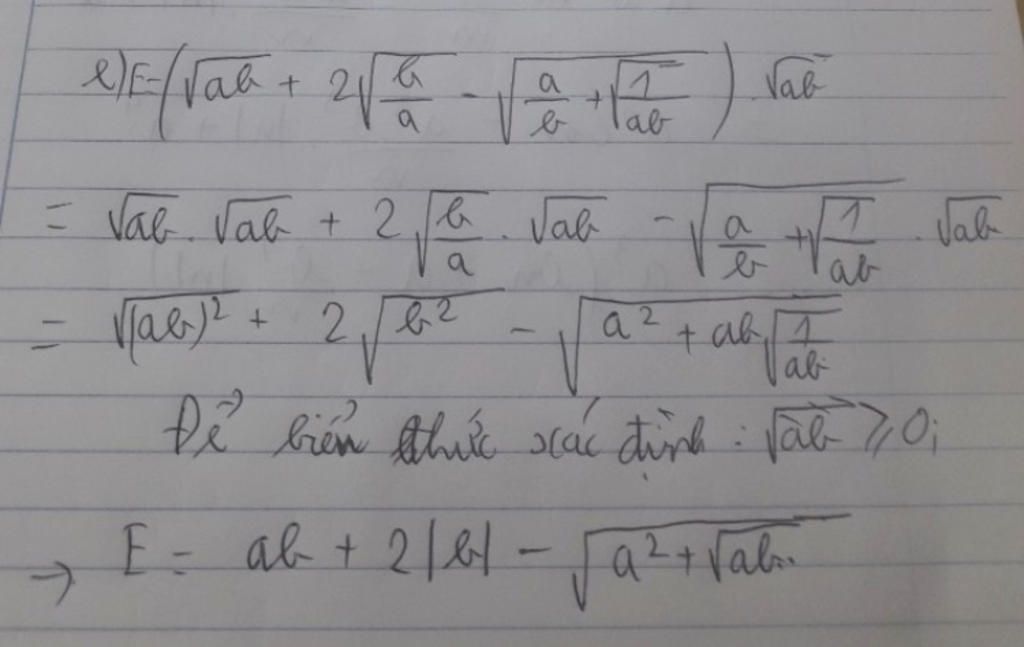 e) E = (√ab + 2√(b/a) - √(a/b + √(1/ab))) . √ab
= √ab . √ab + 2√(b/a) . √ab - √(a/b + √(1/ab)) . √ab
= √(ab)² + 2√b² - √(a² + ab√(1/ab))
Để biển thức xác định : √ab ≥ 0;
→ E = ab + 2|b| - √(a² + √ab)